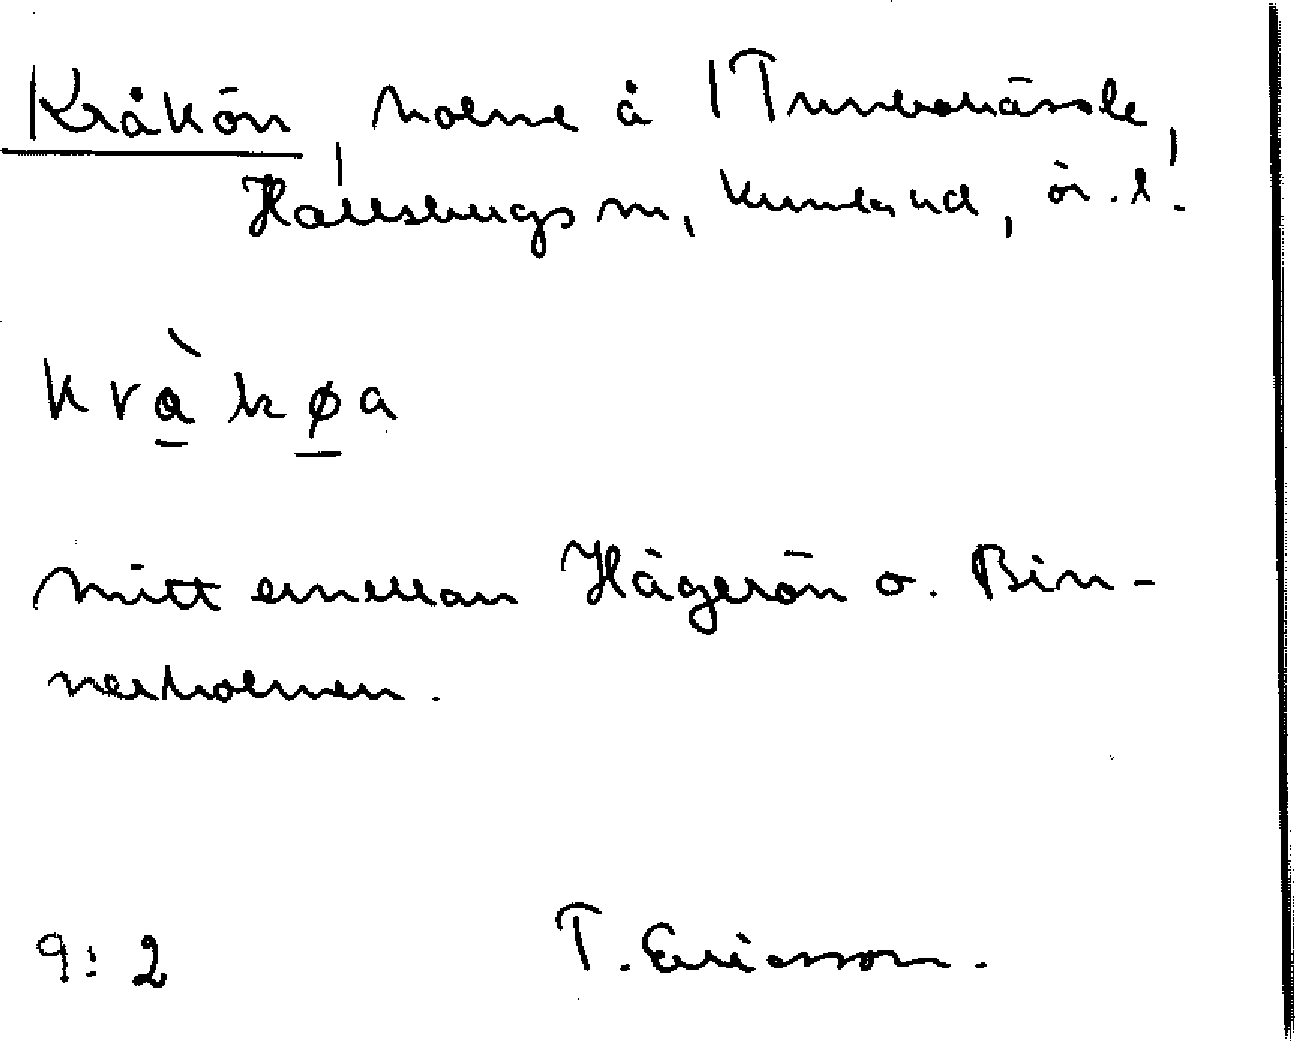 Kråkön, holme å Trunbohärole,
Hallsbergs m, Kumla hd, ör. l.
kràkøa
mitt emellan Hägerön o. Bin-
nerholmen.
9:2 T. Ericsson.